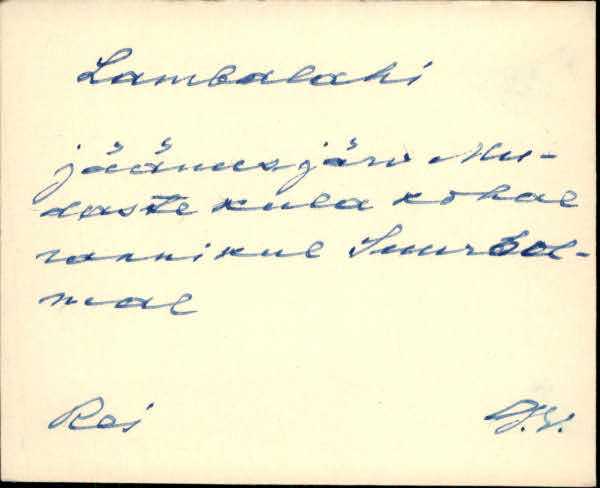 Lambalahi
jäänusjärv Mu-
daste küla kohal
rannikul Suurdol-
mal
Rei